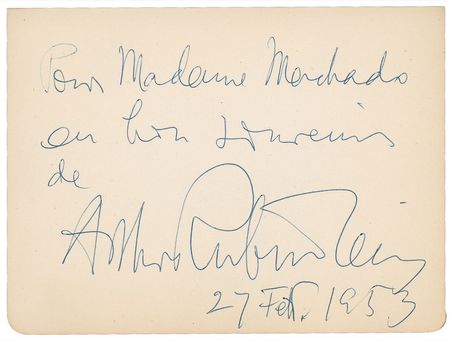 Pour Madame Machado
en bon souvenir
de
Arthur Rubinstein
27 Feb. 1953